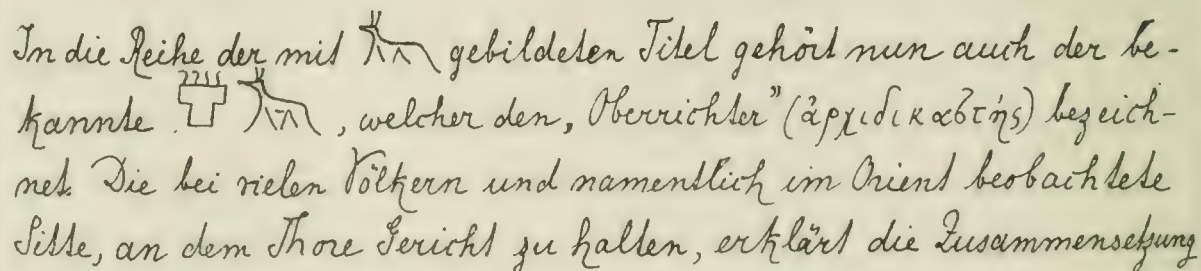 In die Reihe der mit gebildeten Titel gehört nun auch der be-
kannte , welcher den „Oberrichter” (ἀρχιδικαστής) bezeich-
net. Die bei vielen Völkern und namentlich im Orient beobachtete
Sitte, an dem Thore Gericht zu halten, erklärt die Zusammensetzung